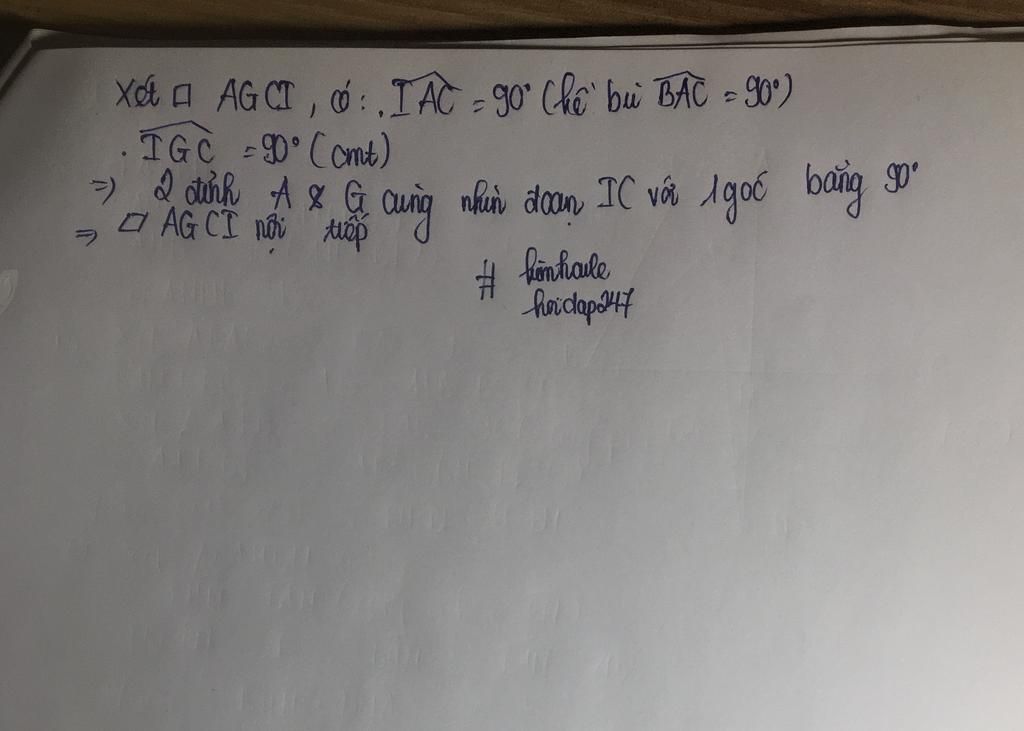 Xét □ AGCI, có: . IAC = 90° (kề bù BAC = 90°)
. IGC = 90° (cmt)
=> 2 đỉnh A & G cùng nhìn đoạn IC với 1 góc bằng 90°
=> □ AGCI nội tiếp
# kimhoule
hoidap247